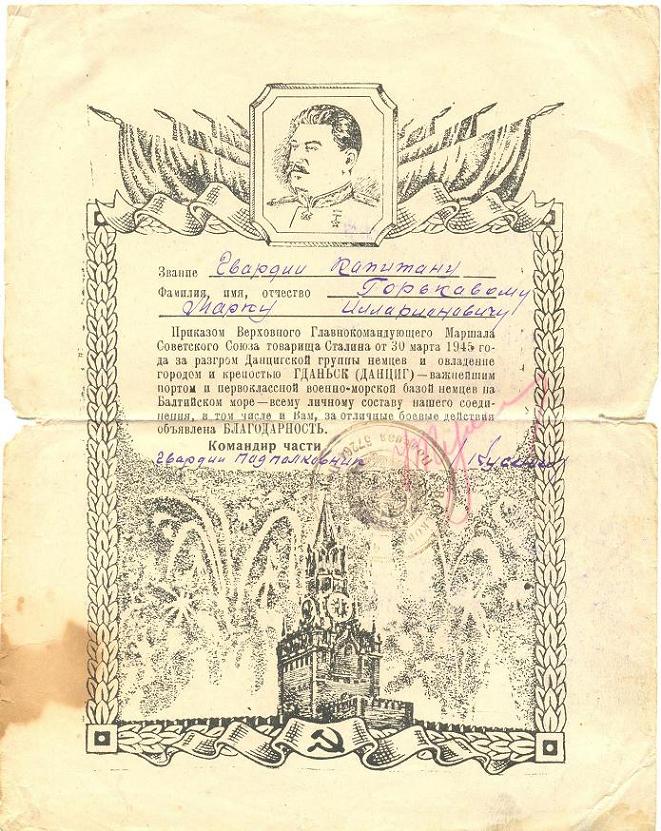 Звание Гвардии Капитану
Фамилия, имя, отчество Горькавому
Марку Илларионовичу
Приказом Верховного Главнокомандующего Маршала
Советского Союза товарища Сталина от 30 марта 1945 го-
да за разгром Данцигской группы немцев и овладение
городом и крепостью ГДАНЬСК (ДАНЦИГ)—важнейшим
портом и первоклассной военно-морской базой немцев на
Балтийском море—всему личному составу нашего соеди-
нения, в том числе и Вам, за отличные боевые действия
объявлена БЛАГОДАРНОСТЬ.
Командир части
Гвардии Подполковник